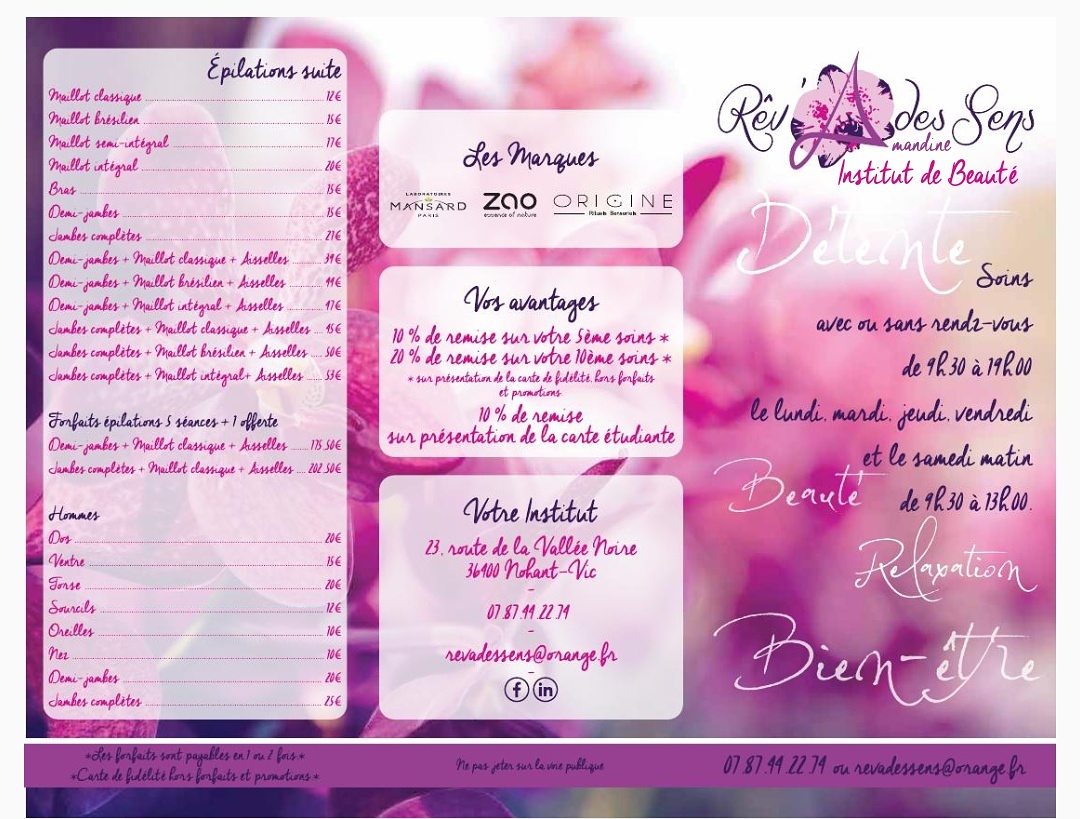 Épilations suite
Maillot classique ........ 12€
Maillot brésilien ........ 15€
Maillot semi-intégral ........ 17€
Maillot intégral ........ 20€
Bras ........ 15€
Demi-jambes ........ 15€
Jambes complètes ........
Demi-jambes + Maillot classique + Aisselles ........ 39€
Demi-jambes + Maillot brésilien + Aisselles ........ 44€
Demi-jambes + Maillot intégral + Aisselles ........ 47€
Jambes complètes + Maillot classique + Aisselles .... 45€
Jambes complètes + Maillot brésilien + Aisselles ..... 50€
Jambes complètes + Maillot intégral+ Aisselles ...... 53€
Forfaits épilations 5 séances + 1 offerte
Demi-jambes + Maillot classique + Aisselles ...... 175.50€
Jambes complètes + Maillot classique + Aisselles .... 202.50€
Hommes
Dos ........ 20€
Ventre ........ 15€
Torse ........ 20€
Sourcils ........ 12€
Oreilles ........ 10€
Nez ........ 10€
Demi-jambes ........ 20€
Jambes complètes ........ 25€
*Les forfaits sont payables en 1 ou 2 fois.*
*Carte de fidélité hors forfaits et promotions *
Les Marques
LABORATOIRES
MANSARD
PARIS
ZAO
essence of nature
ORIGINE
Rituels Sensoriels
Vos avantages
10 % de remise sur votre 5ème soins *
20 % de remise sur votre 10ème soins *
* sur présentation de la carte de fidélité, hors forfaits
et promotions
10 % de remise
sur présentation de la carte étudiante
Votre Institut
23, route de la Vallée Noire
36400 Nohant-Vic
-
07.87.44.22.74
-
revadessens@orange.fr
-
f in
Ne pas jeter sur la voie publique
Rêv'A des Sens
mandine
Institut de Beauté
Détente
Soins
avec ou sans rendz-vous
de 9h30 à 19h00
le lundi, mardi, jeudi, vendredi
et le samedi matin
Beauté
de 9h30 à 13h00.
Relaxation
Bien-être
07.87.44.22.74 ou revadessens@orange.fr